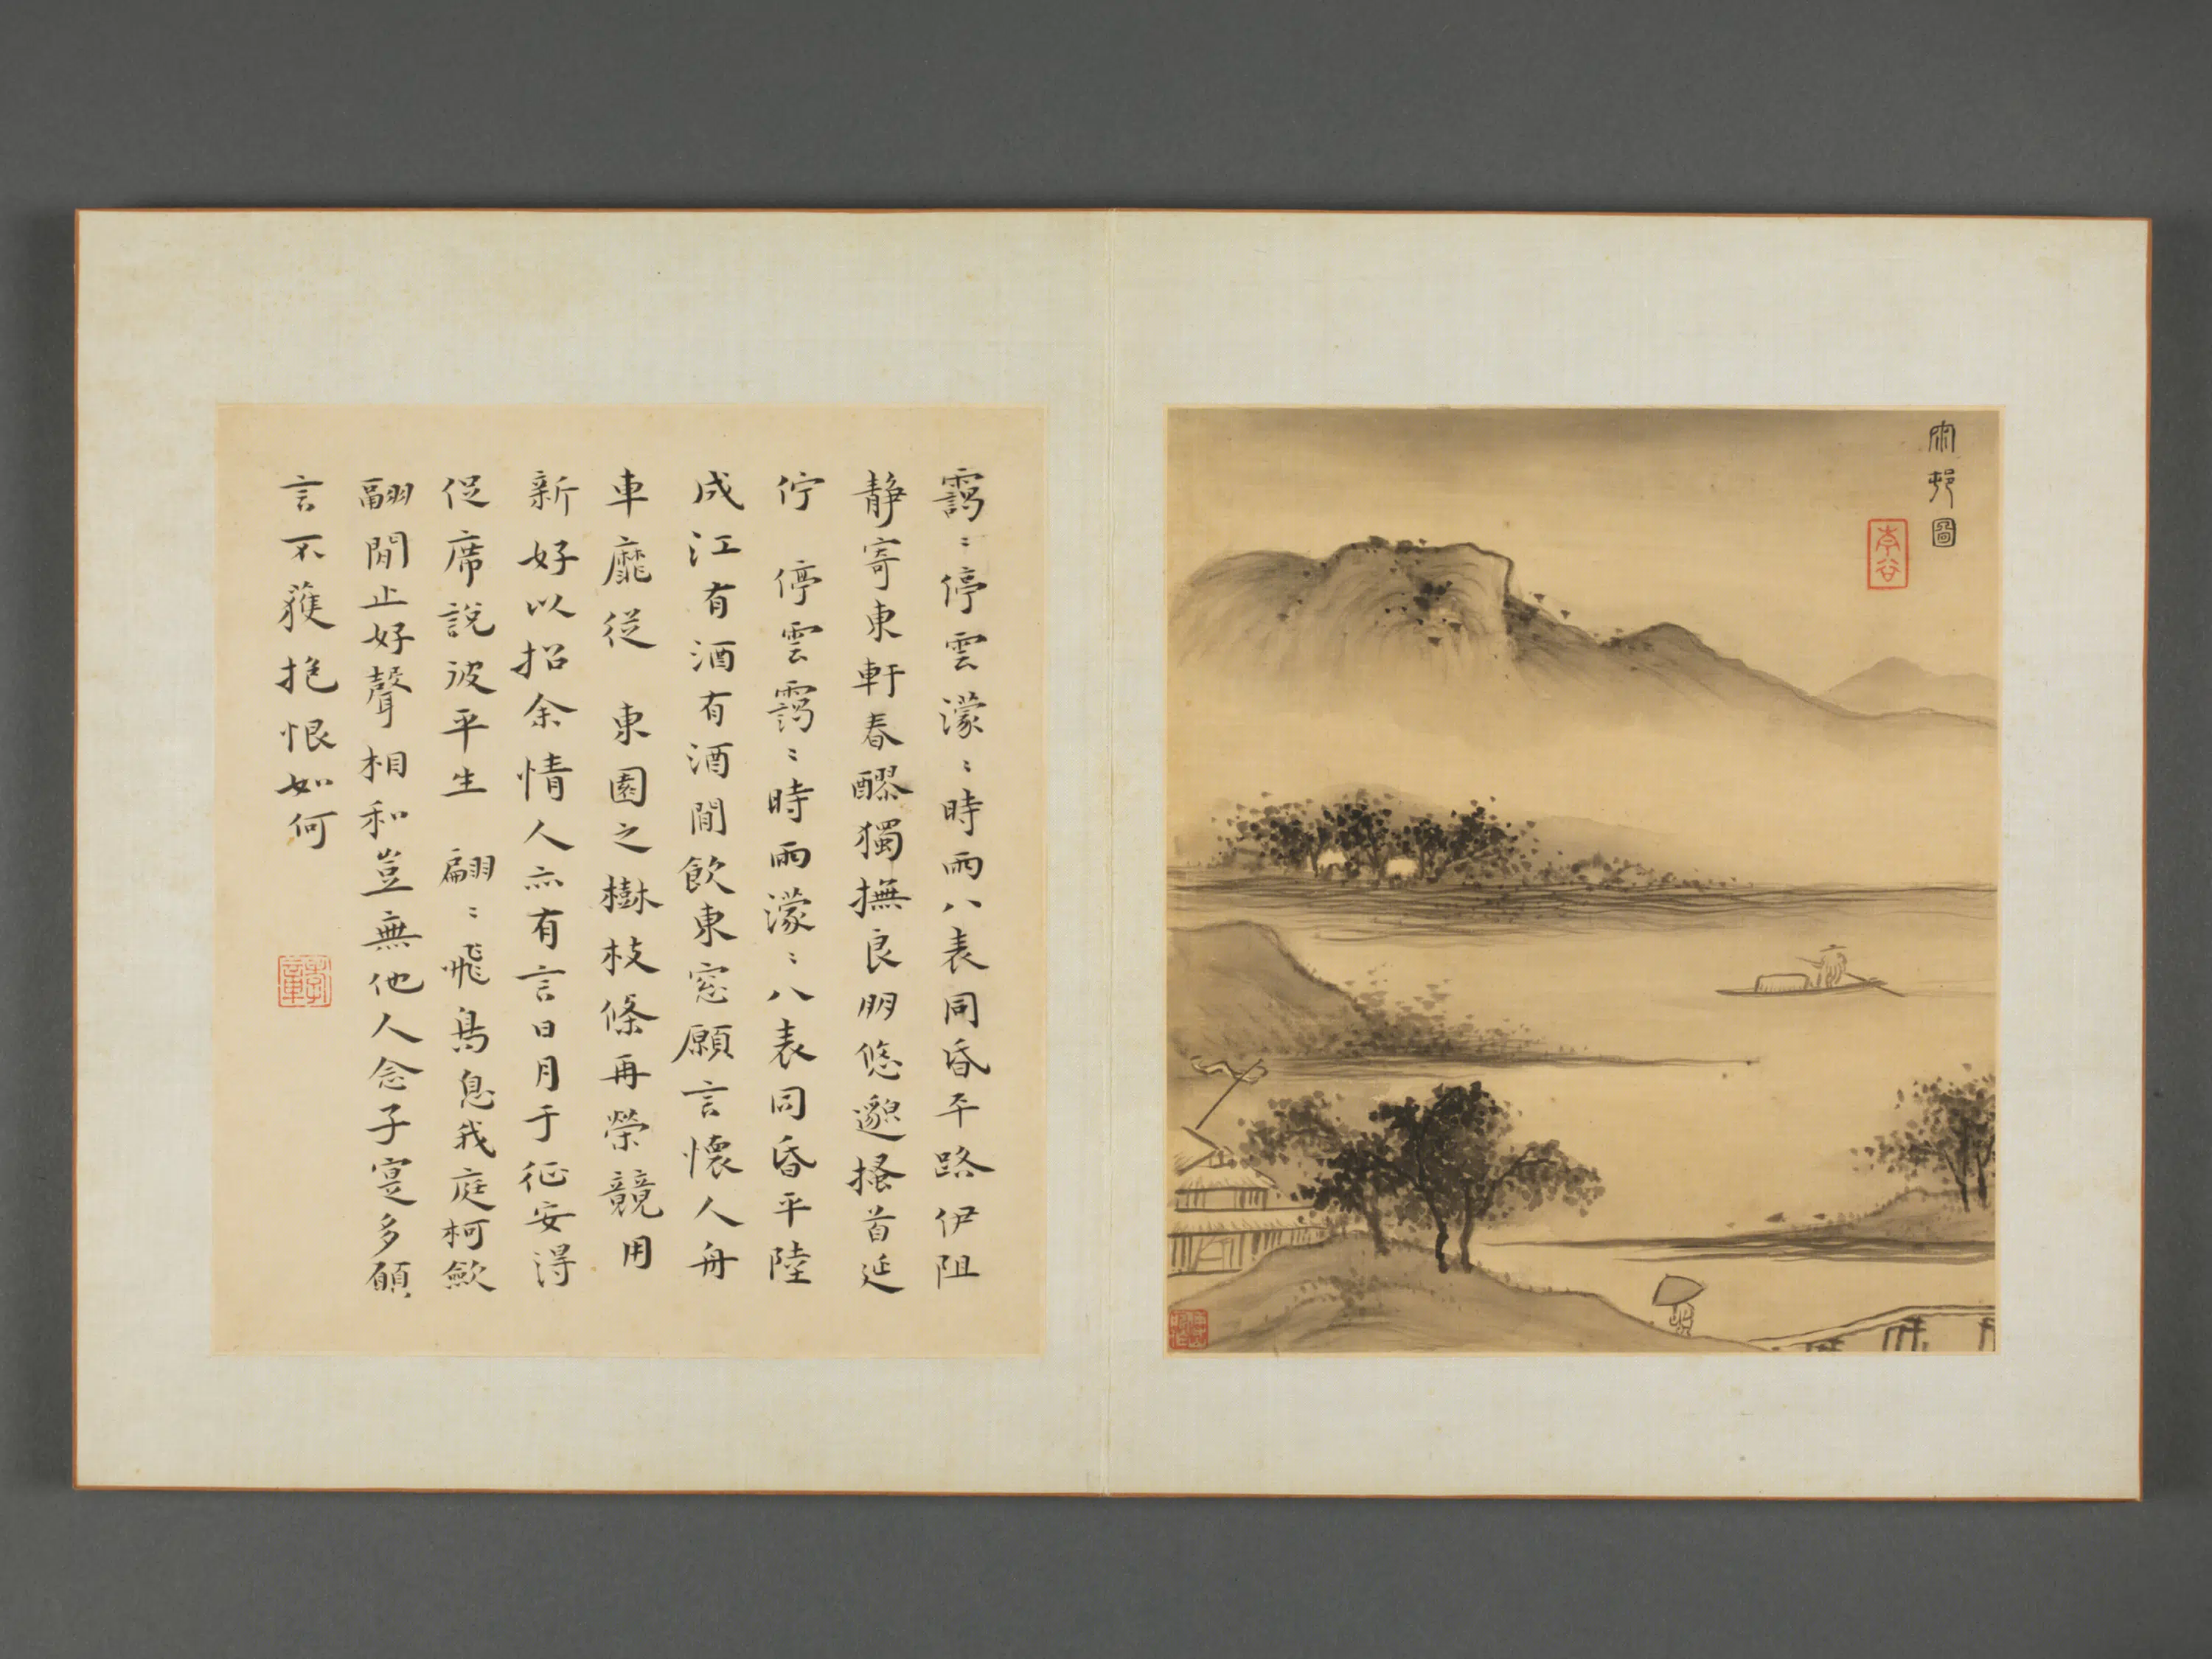 雨邨圖
李谷
靄〻停雲濛〻時雨八表同昏平路伊阻
静寄東軒春醪獨撫良朋悠邈搔首延
佇　停雲靄〻時雨濛〻八表同昏平陸
成江有酒有酒閒飲東窓願言懷人舟
車靡從　東園之樹枝條再榮競用
新好以招余情人亦有言日月于征安得
促席說彼平生　翩〻飛鳥息我庭柯斂
翮閒止好聲相和豈無他人念子寔多願
言不獲抱恨如何